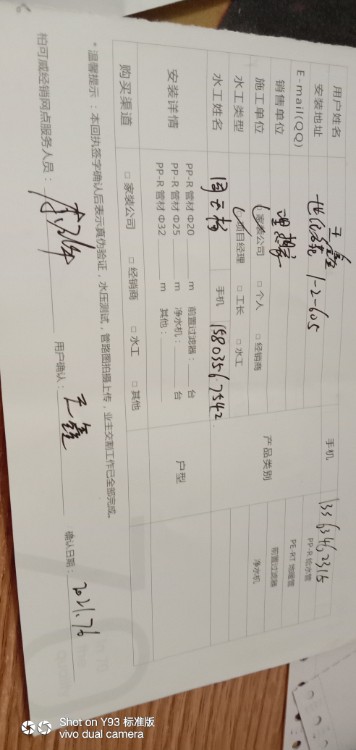 用户姓名 王鑫 手机 13363452315
安装地址 世纪鑫 1-2-605
E-mail(QQ)
销售单位 理想家
施工单位 家装公司 □ 个人 □ 经销商
水工类型 项目经理 □ 工长 □ 水工
水工姓名 手机 15803567542
产品类别
PP-R 给水管
PE-RT 地暖管
前置过滤器
净水机
安装详情
PP-R 管材 Φ20 m 前置过滤器： 台
PP-R 管材 Φ25 m 净水机： 台
PP-R 管材 Φ32 m 其他：
户型
购买渠道 □ 家装公司 □ 经销商 □ 水工 □ 其他
* 温馨提示：本回执签字确认后表示真伪验证，水压测试，管路图拍摄上传，业主交割工作已全部完成。
柏可威经销网点服务人员： 用户确认：王鑫 确认日期：2021.7.6
Shot on Y93 标准版
vivo dual camera